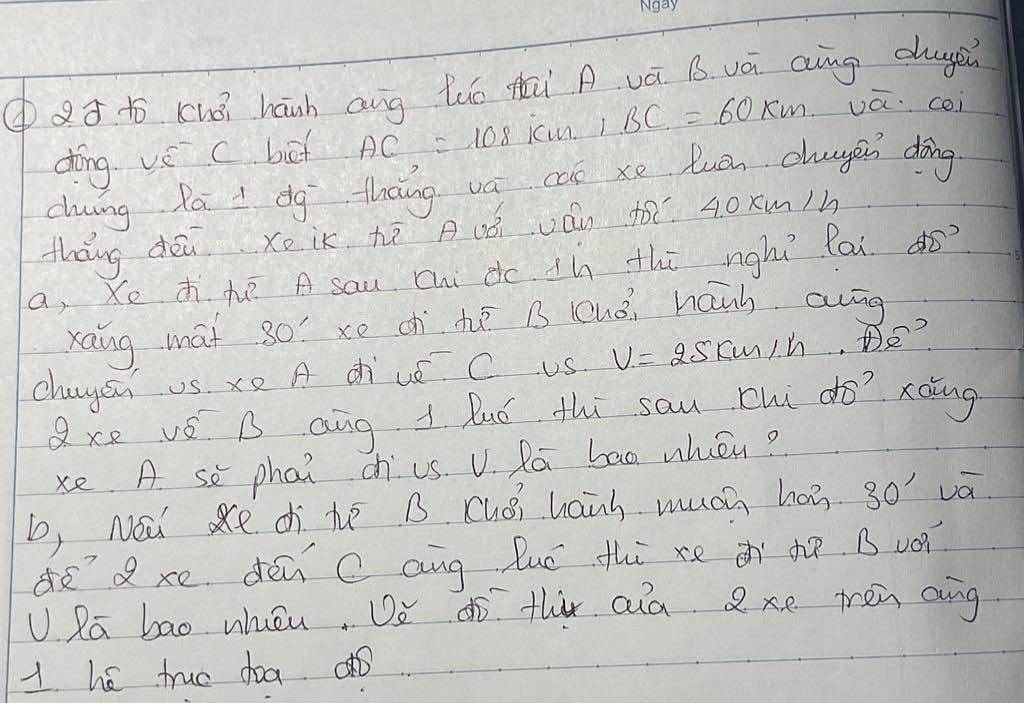 Ngày
① 2 ô tô khởi hành cùng lúc tại A và B và cùng chuyển
động về C biết AC = 108 km, BC = 60 km và coi
chúng là 1 đg thẳng và các xe luôn chuyển động
thẳng đều. Xe ik từ A với vận tốc 40 km/h
a, Xe đi từ A sau khi đc 1h thì nghỉ lại đổ
xăng mất 30' xe đi từ B khởi hành cùng
chuyến vs xe A đi về C vs V = 25 km/h. Để
2 xe về B cùng 1 lúc thì sau khi đổ xăng
xe A sẽ phải đi vs V là bao nhiêu?
b, Nếu xe đi từ B khởi hành muộn hơn 30' và
để 2 xe đến C cùng lúc thì xe đi từ B với
V là bao nhiêu. Vẽ đồ thị của 2 xe trên cùng
1 hệ trục tọa độ